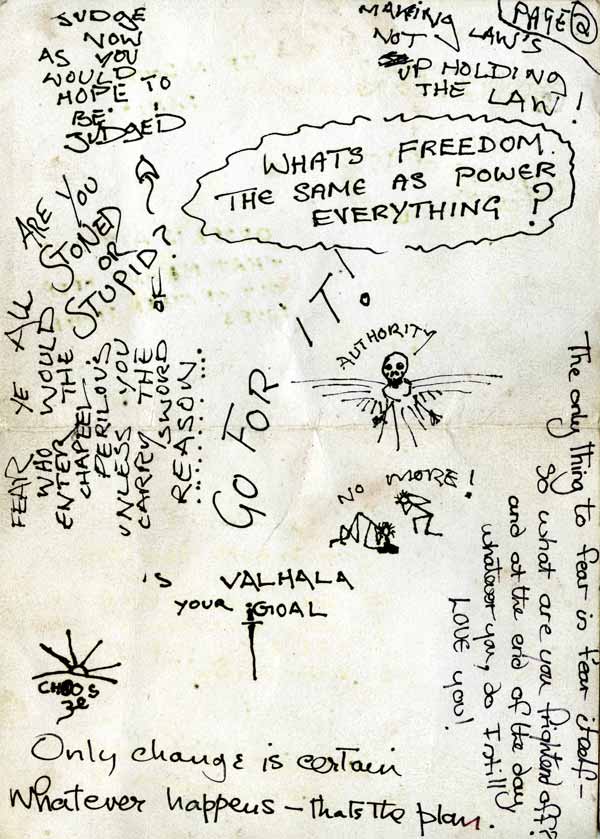 JUDGE
NOW
AS YOU
WOULD
HOPE TO
BE
JUDGED
MAKING
NOT LAW'S
UP HOLDING
THE LAW!
PAGE 2
WHATS FREEDOM.
THE SAME AS POWER
EVERYTHING?
ARE YOU
STONED
OR
STUPID?
FEAR YE ALL
WHO WOULD
ENTER THE
CHAPEEL
PERILOUS
UNLESS YOU
CARRY THE
SWORD OF
REASON........
GO FOR IT!
AUTHORITY
NO MORE!
IS VALHALA
YOUR GOAL
The only thing to fear is fear itself—
so what are you frightend off?
and at the end of the day
whatever you do I still
LOVE you!
CHAOS
Only change is certain
Whatever happens — thats the plan.